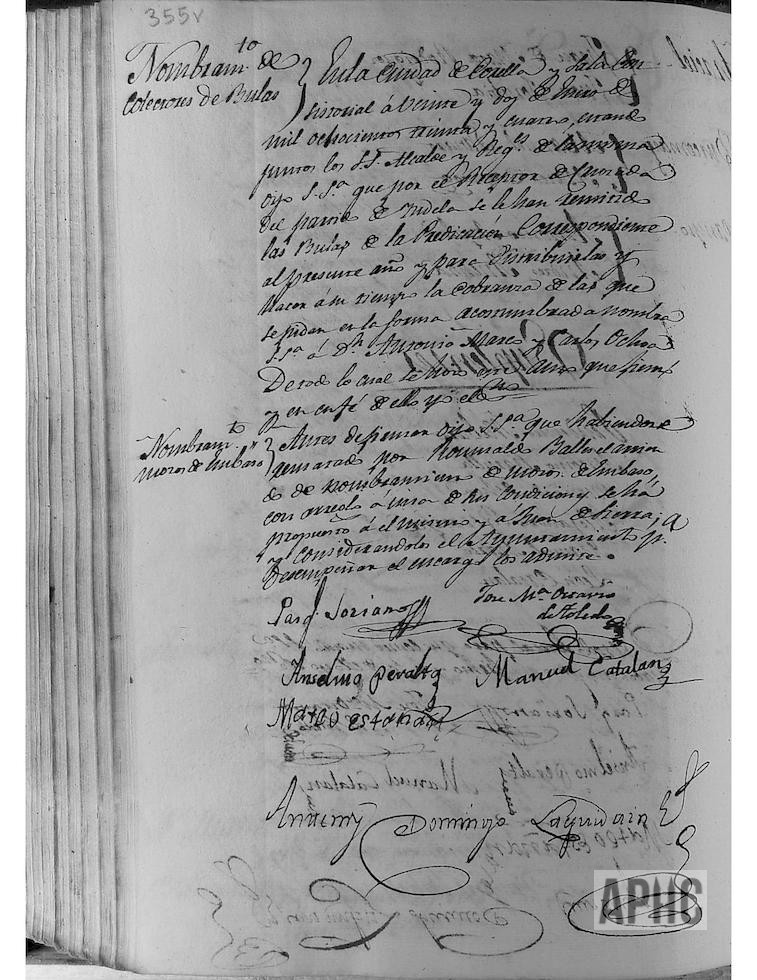 355v
Nombram.to de
Colectores de Bulas
En la Ciudad de Corella y Sala Con-
sistorial á Veinte y dos de Enero de
mil ochocientos treinta y cuatro, estando
juntos los S.S. Alcalde y Reg.es de la misma
dijo S.Sª que por el Receptor de Cruzada
del partido de Tudela se le han remitido
las Bulas de la Predicacion Correspondiente
al presente año y para distribuirlas y
hacer á su tiempo la cobranza de las que
se pidan en la forma acostumbrada nombra
S.Sª á Dn Antonio Marco y Carlos Ochoa
De todo lo cual se hizo este auto que firmó
y en fé de ello yo el Sno
Nombram.to
mozos de Embaso
Antes de firmar dijo S.Sª que habiendose
rematado por Romualdo Balles el
de nombramiento de mozos de Embaso,
con arreglo á una de sus condiciones se há
propuesto á el mismo y á Juan de
y considerandolos el Ayuntamiento p.ª
desempeñar el encargo los admite.
Pasql Soriano
Jose Mª Octavio
de Toledo
Anselmo Peralta
Manuel Catalan
Mateo
Antemy
Domingo Laquidain Es
APHC